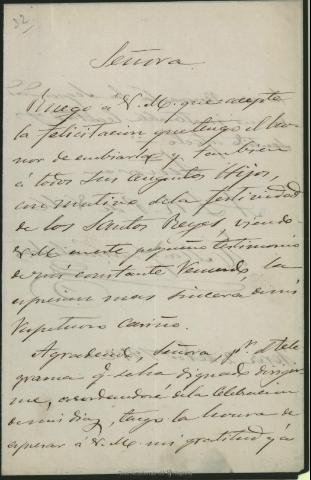 32)
Señora
Ruego á V. M. que acepte
la felicitacion que tengo el ho-
nor de embiarla y tambien
á todos sus augustos Hijos,
con motivo de la festividad
de los Santos Reyes, viendo
V. M. en este pequeño testimonio
de mi constante recuerdo, la
espresion mas sincera de mi
respetuoso cariño.
Agradecido, Señora, pr. el tele
grama q. se ha dignado dirigir
me, acordandose de la celebracion
de mi dia, tengo la honra de
espresar á V. M. mi gratitud y á